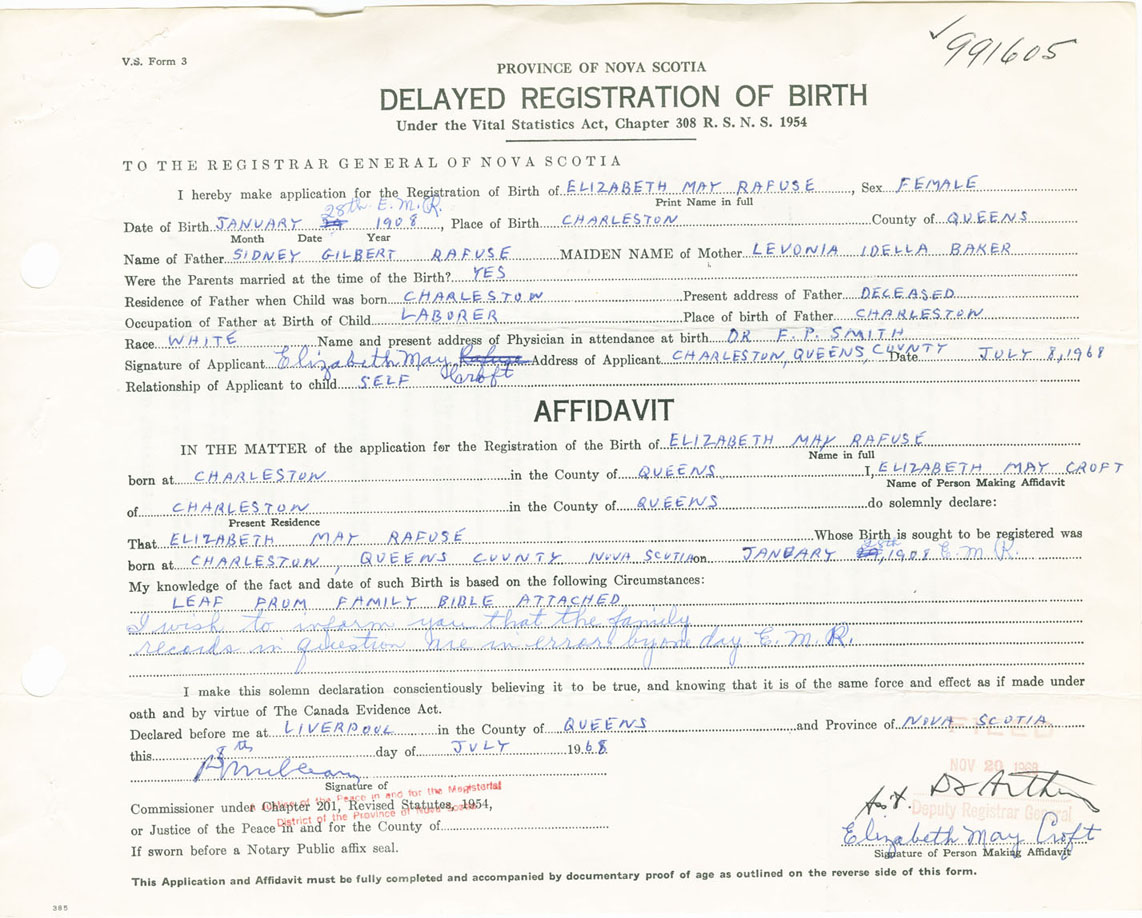 ✓991605
V.S. Form 3
PROVINCE OF NOVA SCOTIA
DELAYED REGISTRATION OF BIRTH
Under the Vital Statistics Act, Chapter 308 R. S. N. S. 1954
TO THE REGISTRAR GENERAL OF NOVA SCOTIA
I hereby make application for the Registration of Birth of ELIZABETH MAY RAFUSE, Sex FEMALE
Print Name in full
28th E.M.R.
Date of Birth JANUARY 1908, Place of Birth CHARLESTON County of QUEENS
Month Date Year
Name of Father SIDNEY GILBERT RAFUSE MAIDEN NAME of Mother LEVONIA IDELLA BAKER
Were the Parents married at the time of the Birth? YES
Residence of Father when Child was born CHARLESTON Present address of Father DECEASED
Occupation of Father at Birth of Child LABORER Place of birth of Father CHARLESTON
Race WHITE Name and present address of Physician in attendance at birth DR F.P. SMITH
Signature of Applicant Elizabeth May Rafuse Address of Applicant CHARLESTON, QUEENS, COUNTY Date JULY 8, 1968
Croft
Relationship of Applicant to child SELF
AFFIDAVIT
IN THE MATTER of the application for the Registration of the Birth of ELIZABETH MAY RAFUSE
Name in full
born at CHARLESTON in the County of QUEENS I, ELIZABETH MAY CROFT
Name of Person Making Affidavit
of CHARLESTON in the County of QUEENS do solemnly declare:
Present Residence
That ELIZABETH MAY RAFUSE Whose Birth is sought to be registered was
28th
born at CHARLESTON, QUEENS COUNTY NOVA SCOTIA on JANUARY , 1908 E.M.R.
My knowledge of the fact and date of such Birth is based on the following Circumstances:
LEAF FROM FAMILY BIBLE ATTACHED
I wish to inform you that the family
records in question are in error by one day E.M.R.
I make this solemn declaration conscientiously believing it to be true, and knowing that it is of the same force and effect as if made under
oath and by virtue of The Canada Evidence Act.
Declared before me at LIVERPOOL in the County of QUEENS and Province of NOVA SCOTIA
FILED
this 8th day of JULY 1968
NOV 29 1968
Signature of
Commissioner under Chapter 201, Revised Statutes, 1954,
of the Peace in and for the Magisterial
District of the Province of Nova Scotia
or Justice of the Peace in and for the County of
Deputy Registrar General
Elizabeth May Croft
Signature of Person Making Affidavit
If sworn before a Notary Public affix seal.
This Application and Affidavit must be fully completed and accompanied by documentary proof of age as outlined on the reverse side of this form.
385